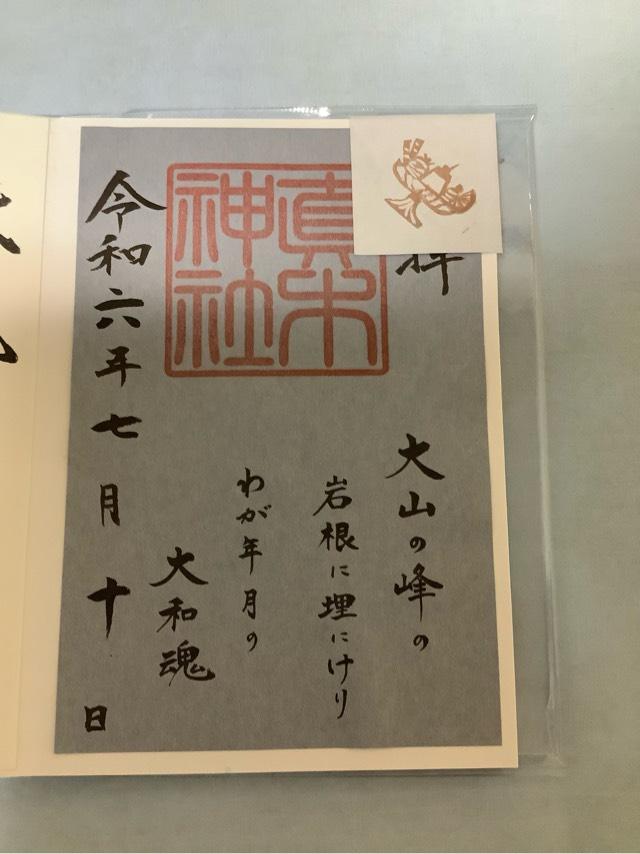 拝
大山の峰の
岩根に埋にけり
わが年月の
大和魂
真木神社
令和六年七月十日